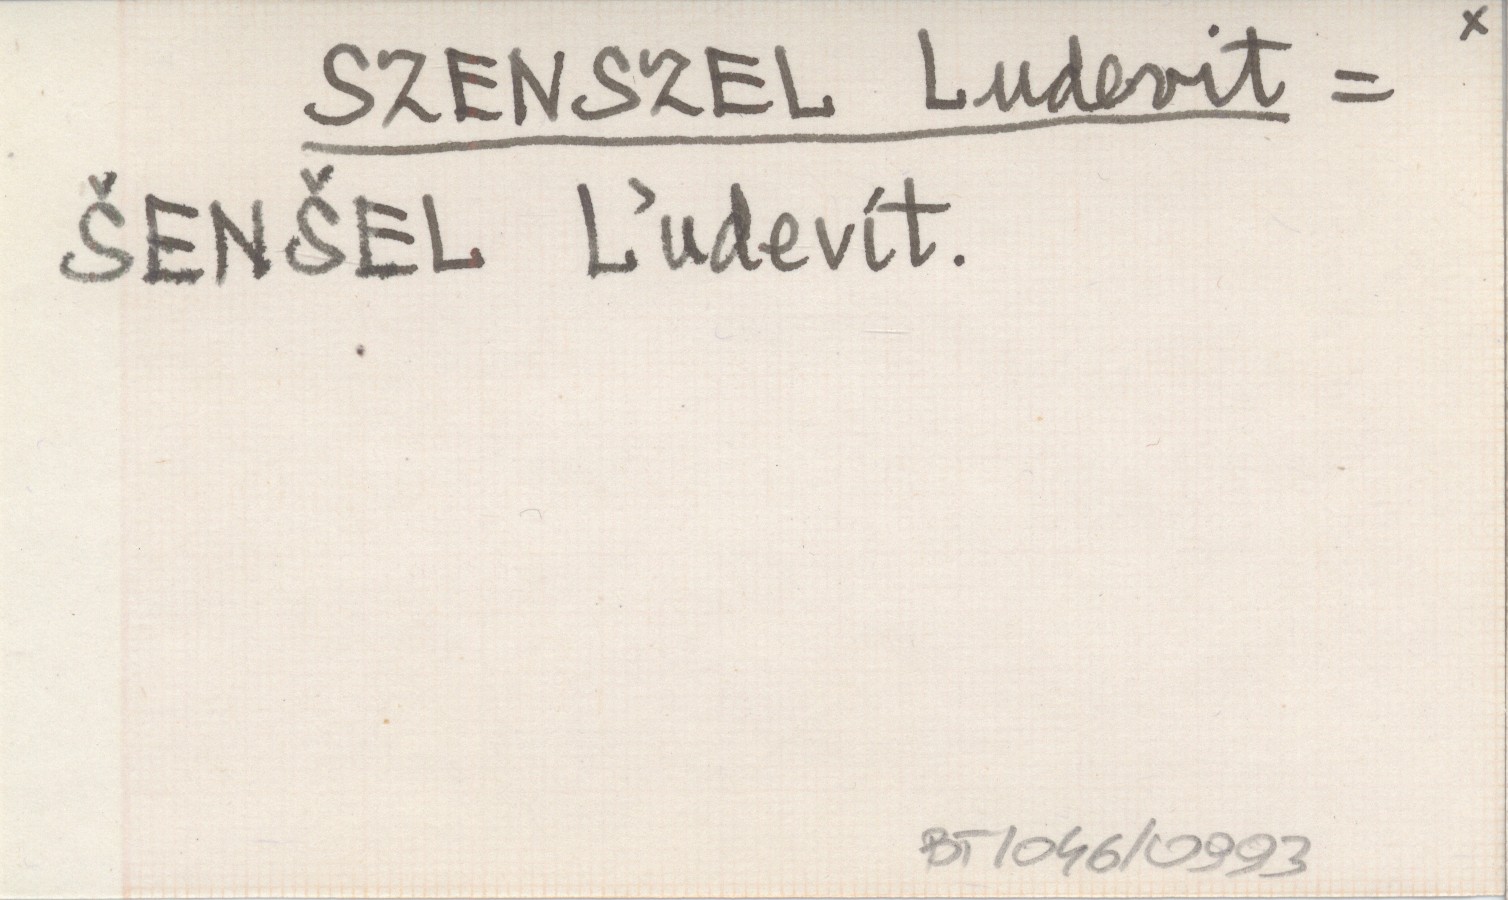 x
SZENSZEL Ludevit =
ŠENŠEL Ľudevít.
BT/046/0993